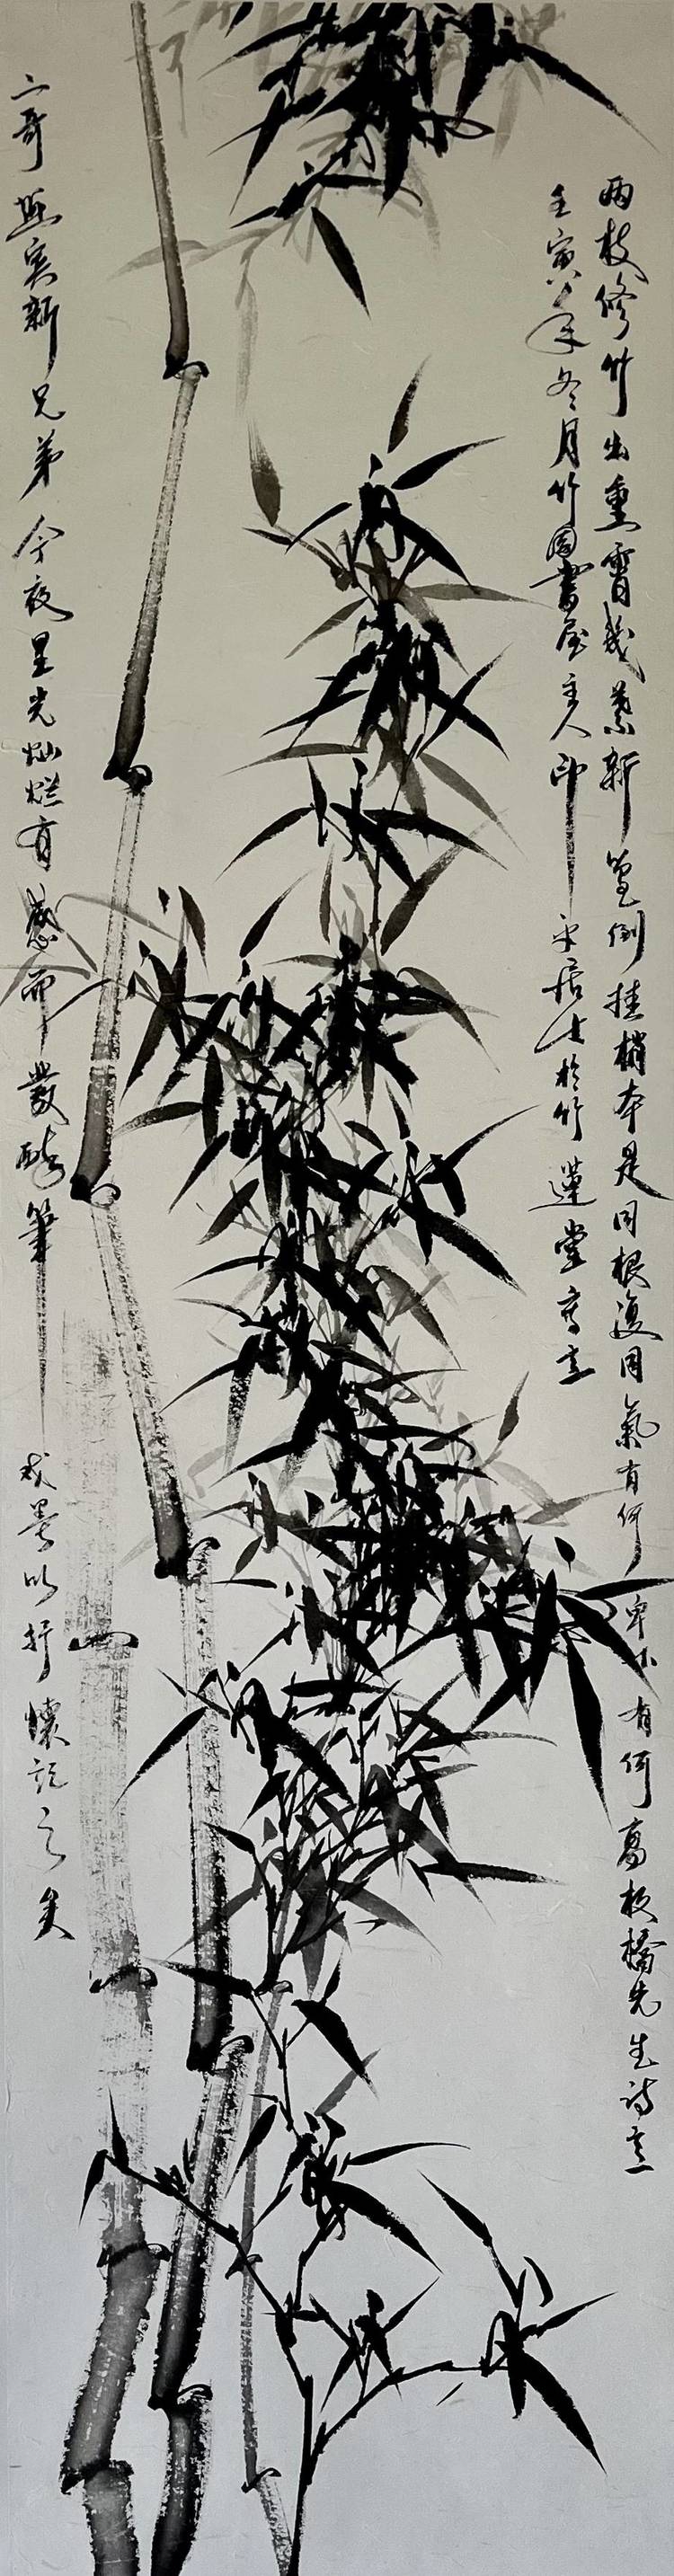 兩枝修竹出重霄幾葉新篁倒挂梢本是同根復同氣有何卑下有何高板橋先生詩意
壬寅年冬月竹園書屋主人印平居士於竹蓮堂寫意
二哥
實新兄弟今夜星光燦爛有感而發醉筆戏墨以抒懷记之矣